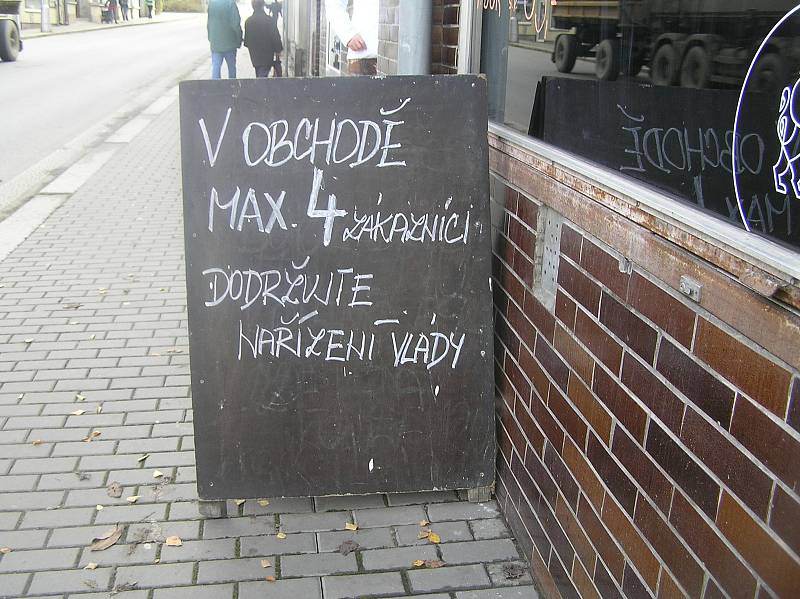 V OBCHODĚ
MAX. 4 ZÁKAZNÍCI
DODRŽUJTE
NAŘÍZENÍ VLÁDY